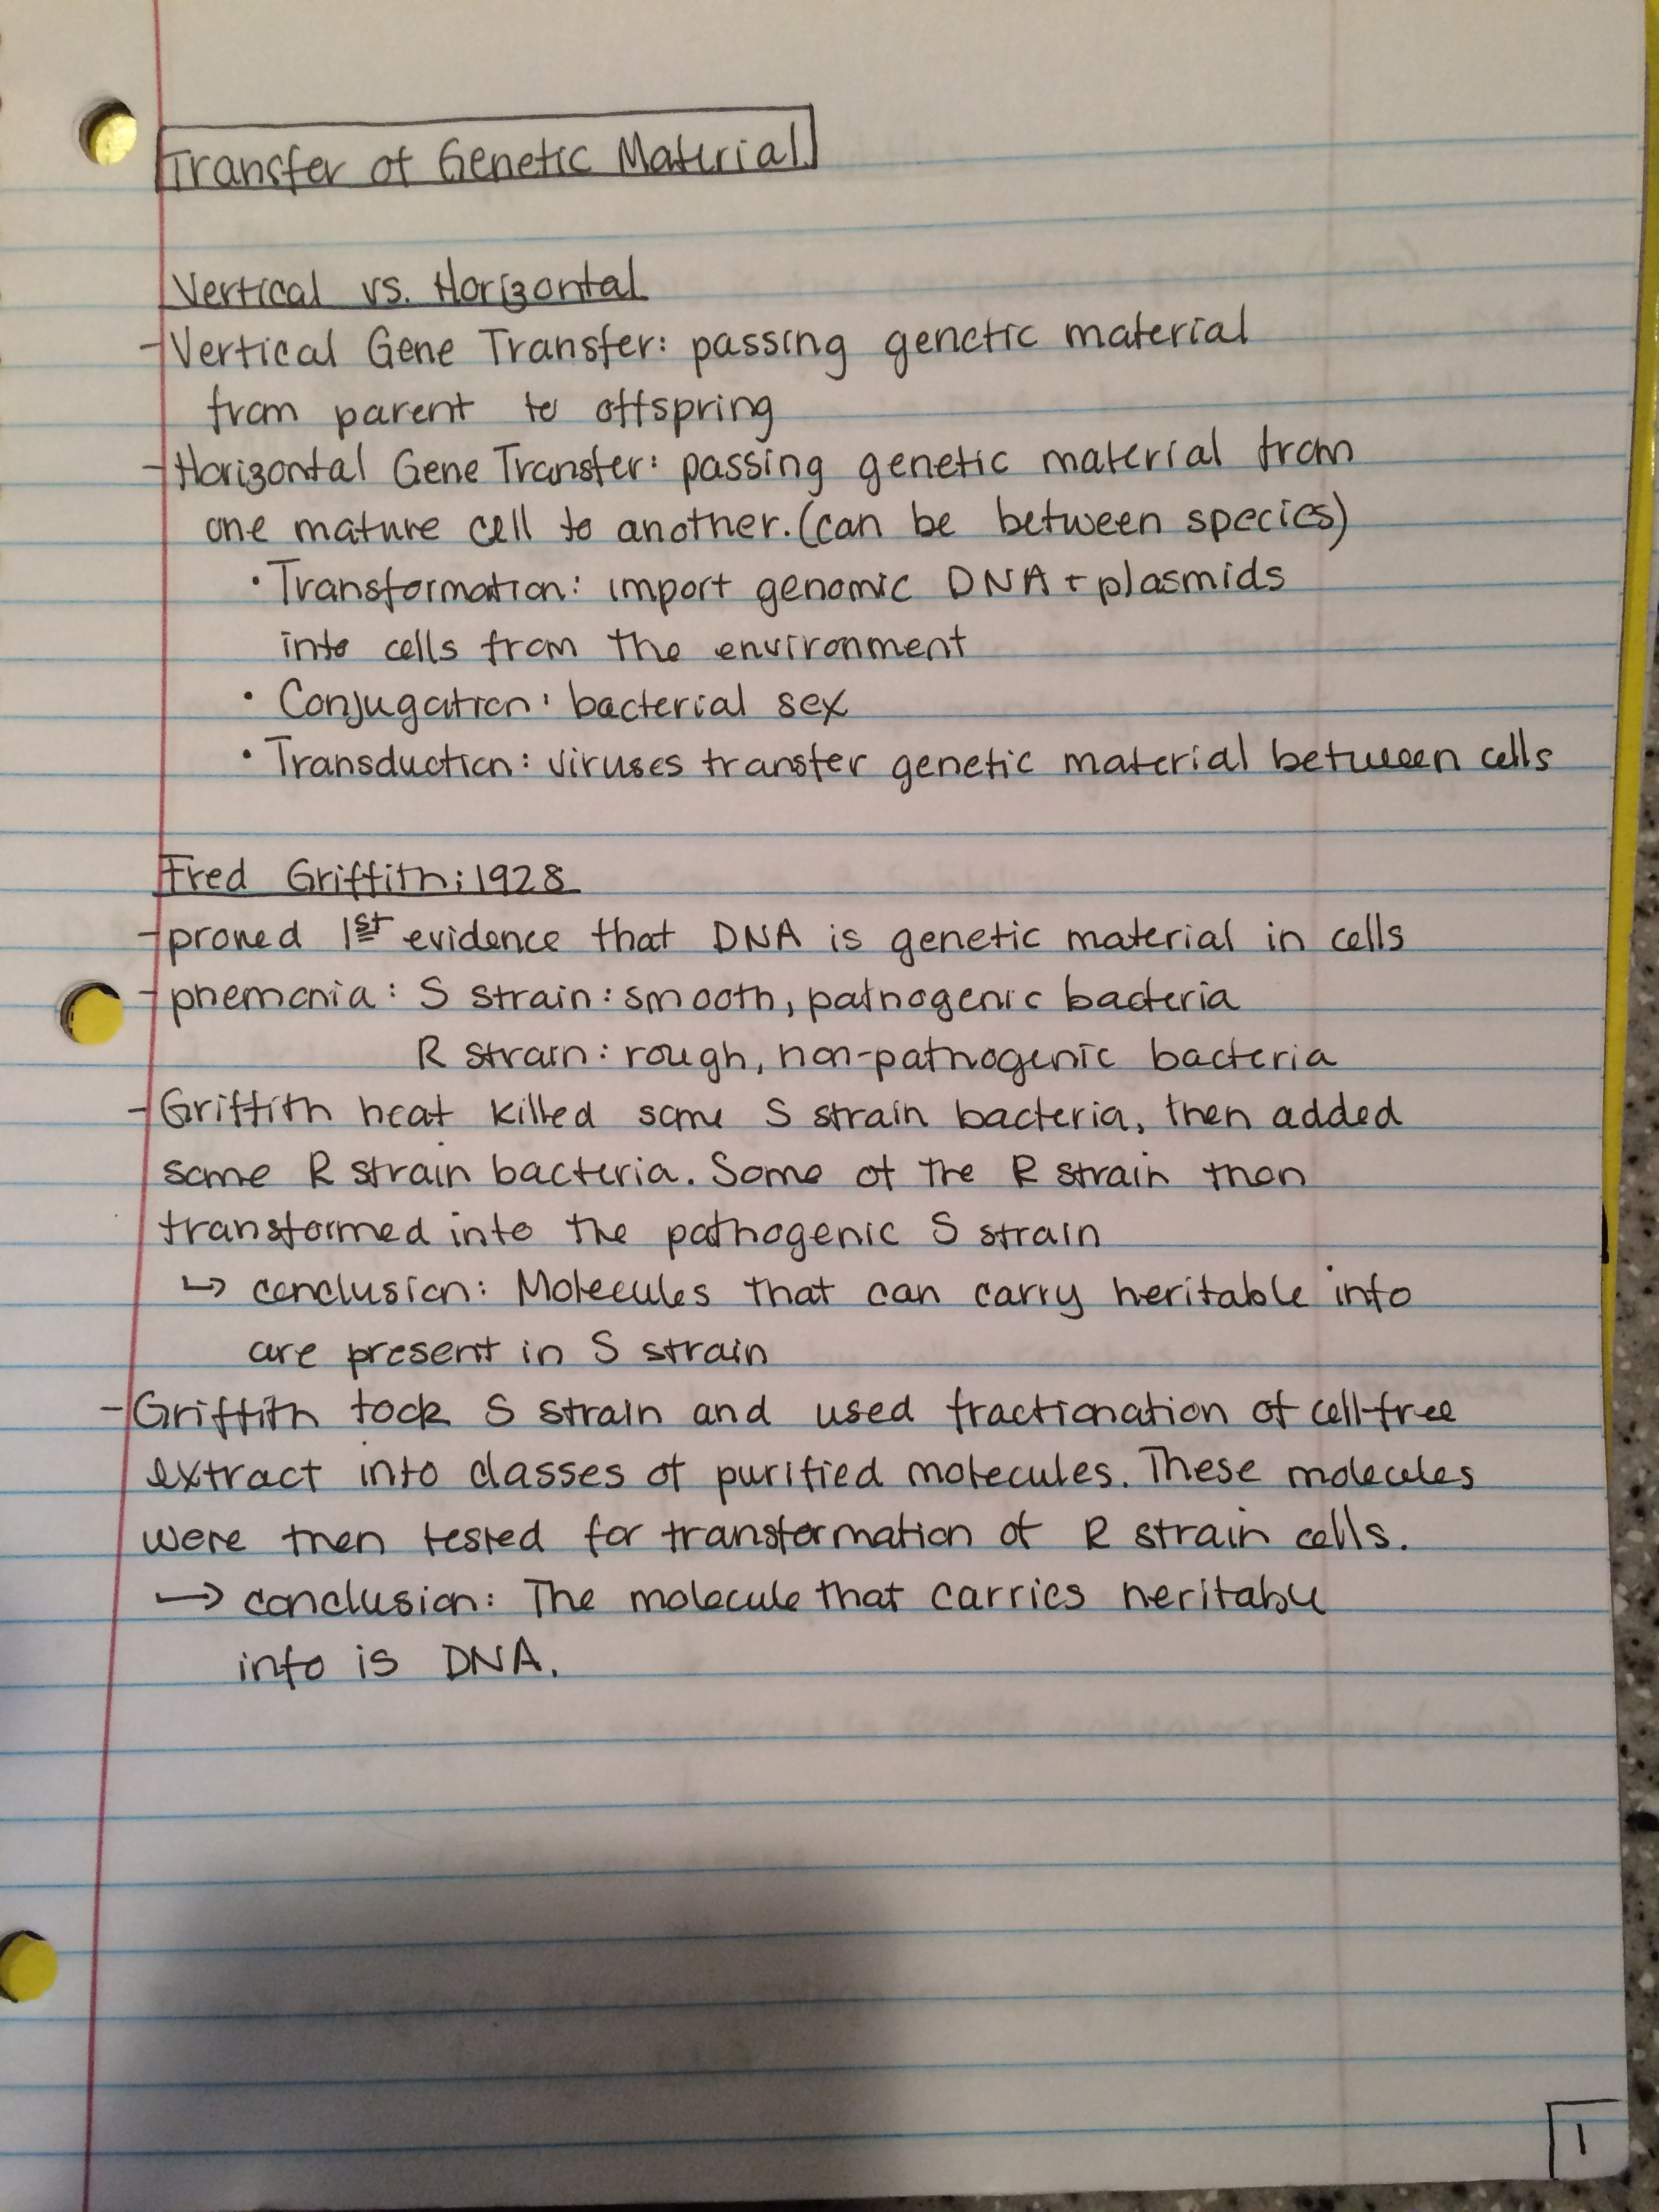 Transfer of Genetic Material
Vertical vs. Horizontal
- Vertical Gene Transfer: passing genetic material
from parent to offspring
- Horizontal Gene Transfer: passing genetic material from
one mature cell to another. (can be between species)
• Transformation: import genomic DNA + plasmids
into cells from the environment
• Conjugation: bacterial sex
• Transduction: viruses transfer genetic material between cells
Fred Griffith: 1928
- proved 1st evidence that DNA is genetic material in cells
- pnemonia: S strain: smooth, pathogenic bacteria
R strain: rough, non-pathogenic bacteria
- Griffith heat killed some S strain bacteria, then added
some R strain bacteria. Some of the R strain then
transformed into the pathogenic S strain
↳ conclusion: Molecules that can carry heritable info
are present in S strain
- Griffith took S strain and used fractionation of cell-free
extract into classes of purified molecules. These molecules
were then tested for transformation of R strain cells.
↳ conclusion: The molecule that carries heritable
info is DNA.
1